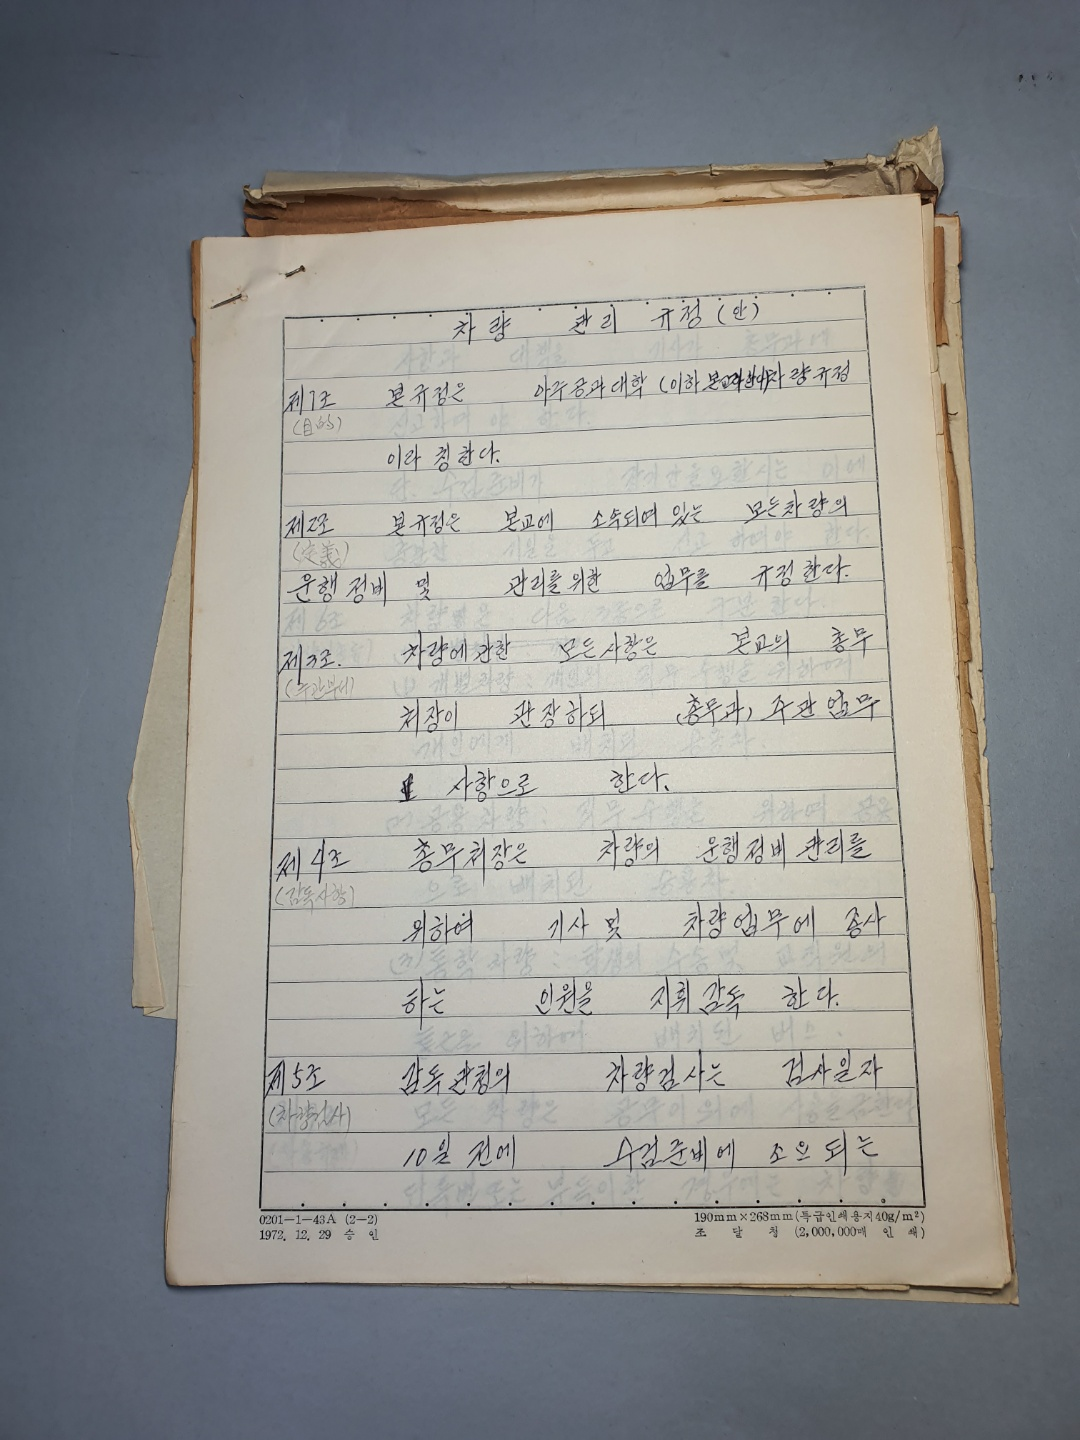 차량 관리 규정(안)
제1조 본 규정은 아주공과대학 (이하 본교라 한다) 차량규정
(目的)
이라 칭한다.
제2조 본 규정은 본교에 소속되여 있는 모든 차량의
(定義)
운행 정비 및 관리를 위한 업무를 규정 한다.
제3조. 차량에 관한 모든 사항은 본교의 총무
(주관부서)
처장이 관장하되 (총무과) 주관 업무
사항으로 한다.
제4조 총무처장은 차량의 운행정비 관리를
(감독사항)
위하여 기사 및 차량업무에 종사
하는 인원을 지휘 감독 한다.
제5조 감독관청의 차량검사는 검사일자
(차량검사)
10일 전에 수검준비에 소요 되는
0201-1-43A (2-2)
1972. 12. 29 승인
190mm×268mm(특급인쇄용지40g/m²)
조 달 청 (2,000,000매 인쇄)